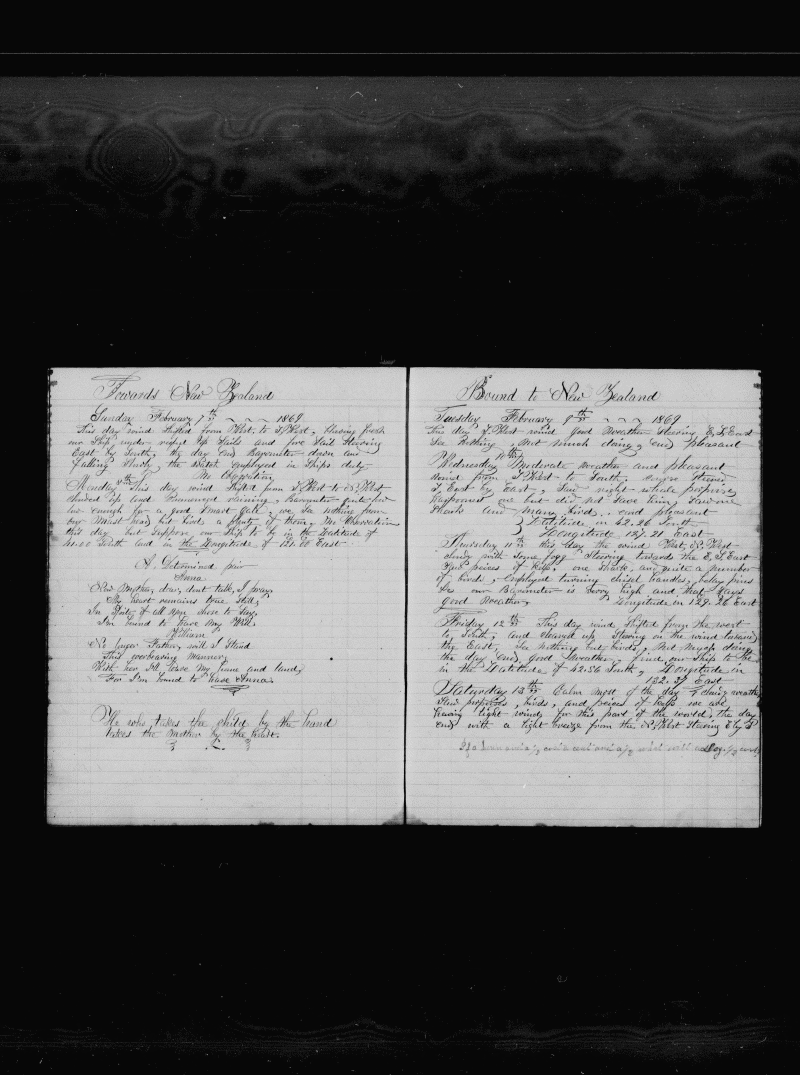 Towards New Zealand
Sunday February 7th 1869
This day wind shifted from West, to S West, blowing fresh
our Ship under reefed top Sails and fore Sail Steering
East by South, the day ends Barometer down and
falling Slowly the Watch employed in Ships duty
No Observation
Monday 8th This day wind Shifted from S West to N West
clouded up and commenced raining, Barometer quite low
low enough for a good Smart Gale, we See nothing from
our Mast heads but birds a plenty of them, No Observation
this day but Suppose our Ship to be in the Latitude of
41.00 South and in the Longitude of 121.00 East
A Determined pair
Anna
Now Mother, dear, dont talk, I pray,
My heart remains true Still,
In Spite of all Men chose to Say,
I'm bound to have My Will.
William
No longer Father, will I Stand
This overbearing Manner,
With her I'll leave My home and land,
For I'm bound to have Anna.
He who takes the child by the hand
takes the Mother by the heart.
Bound to New Zealand
Tuesday February 9th 1869
this day S West wind good Weather Steering E, S, East
See Nothing, Not Much doing, ends pleasant
Wednesday 10th Moderate Weather and pleasant
wind from S West to South,
East by East, Saw right whale
but did not Save him, Saw one
Shark and Many birds, ends pleasant
Latitude in 42.26 South
Longitude 127.21 East
Thursday 11th this day the wind West, N, West
cloudy with Some fogg Steering towards the E, S, East
Saw peices of kelp, one Shark, and quite a number
of birds, employed turning chisel handles, belay pins
&c our Barometer is very high and that Says
good Weather, Longitude in 129.26 East
Friday 12th This day wind Shifted from the west
to South, and cleared up Steering on the wind towards
the East, See nothing but birds, Not Much doing
the day ends good Weather, find our Ship to be
in the Latitude of 42.56 South, Longitude in
132.37 East
Saturday 13th Calm Most of the day & closing weather
Saw porpoises, birds, and peices of kelp we are
having light winds for this part of the world, the day
ends with a light breeze from the N, West Steering E by S